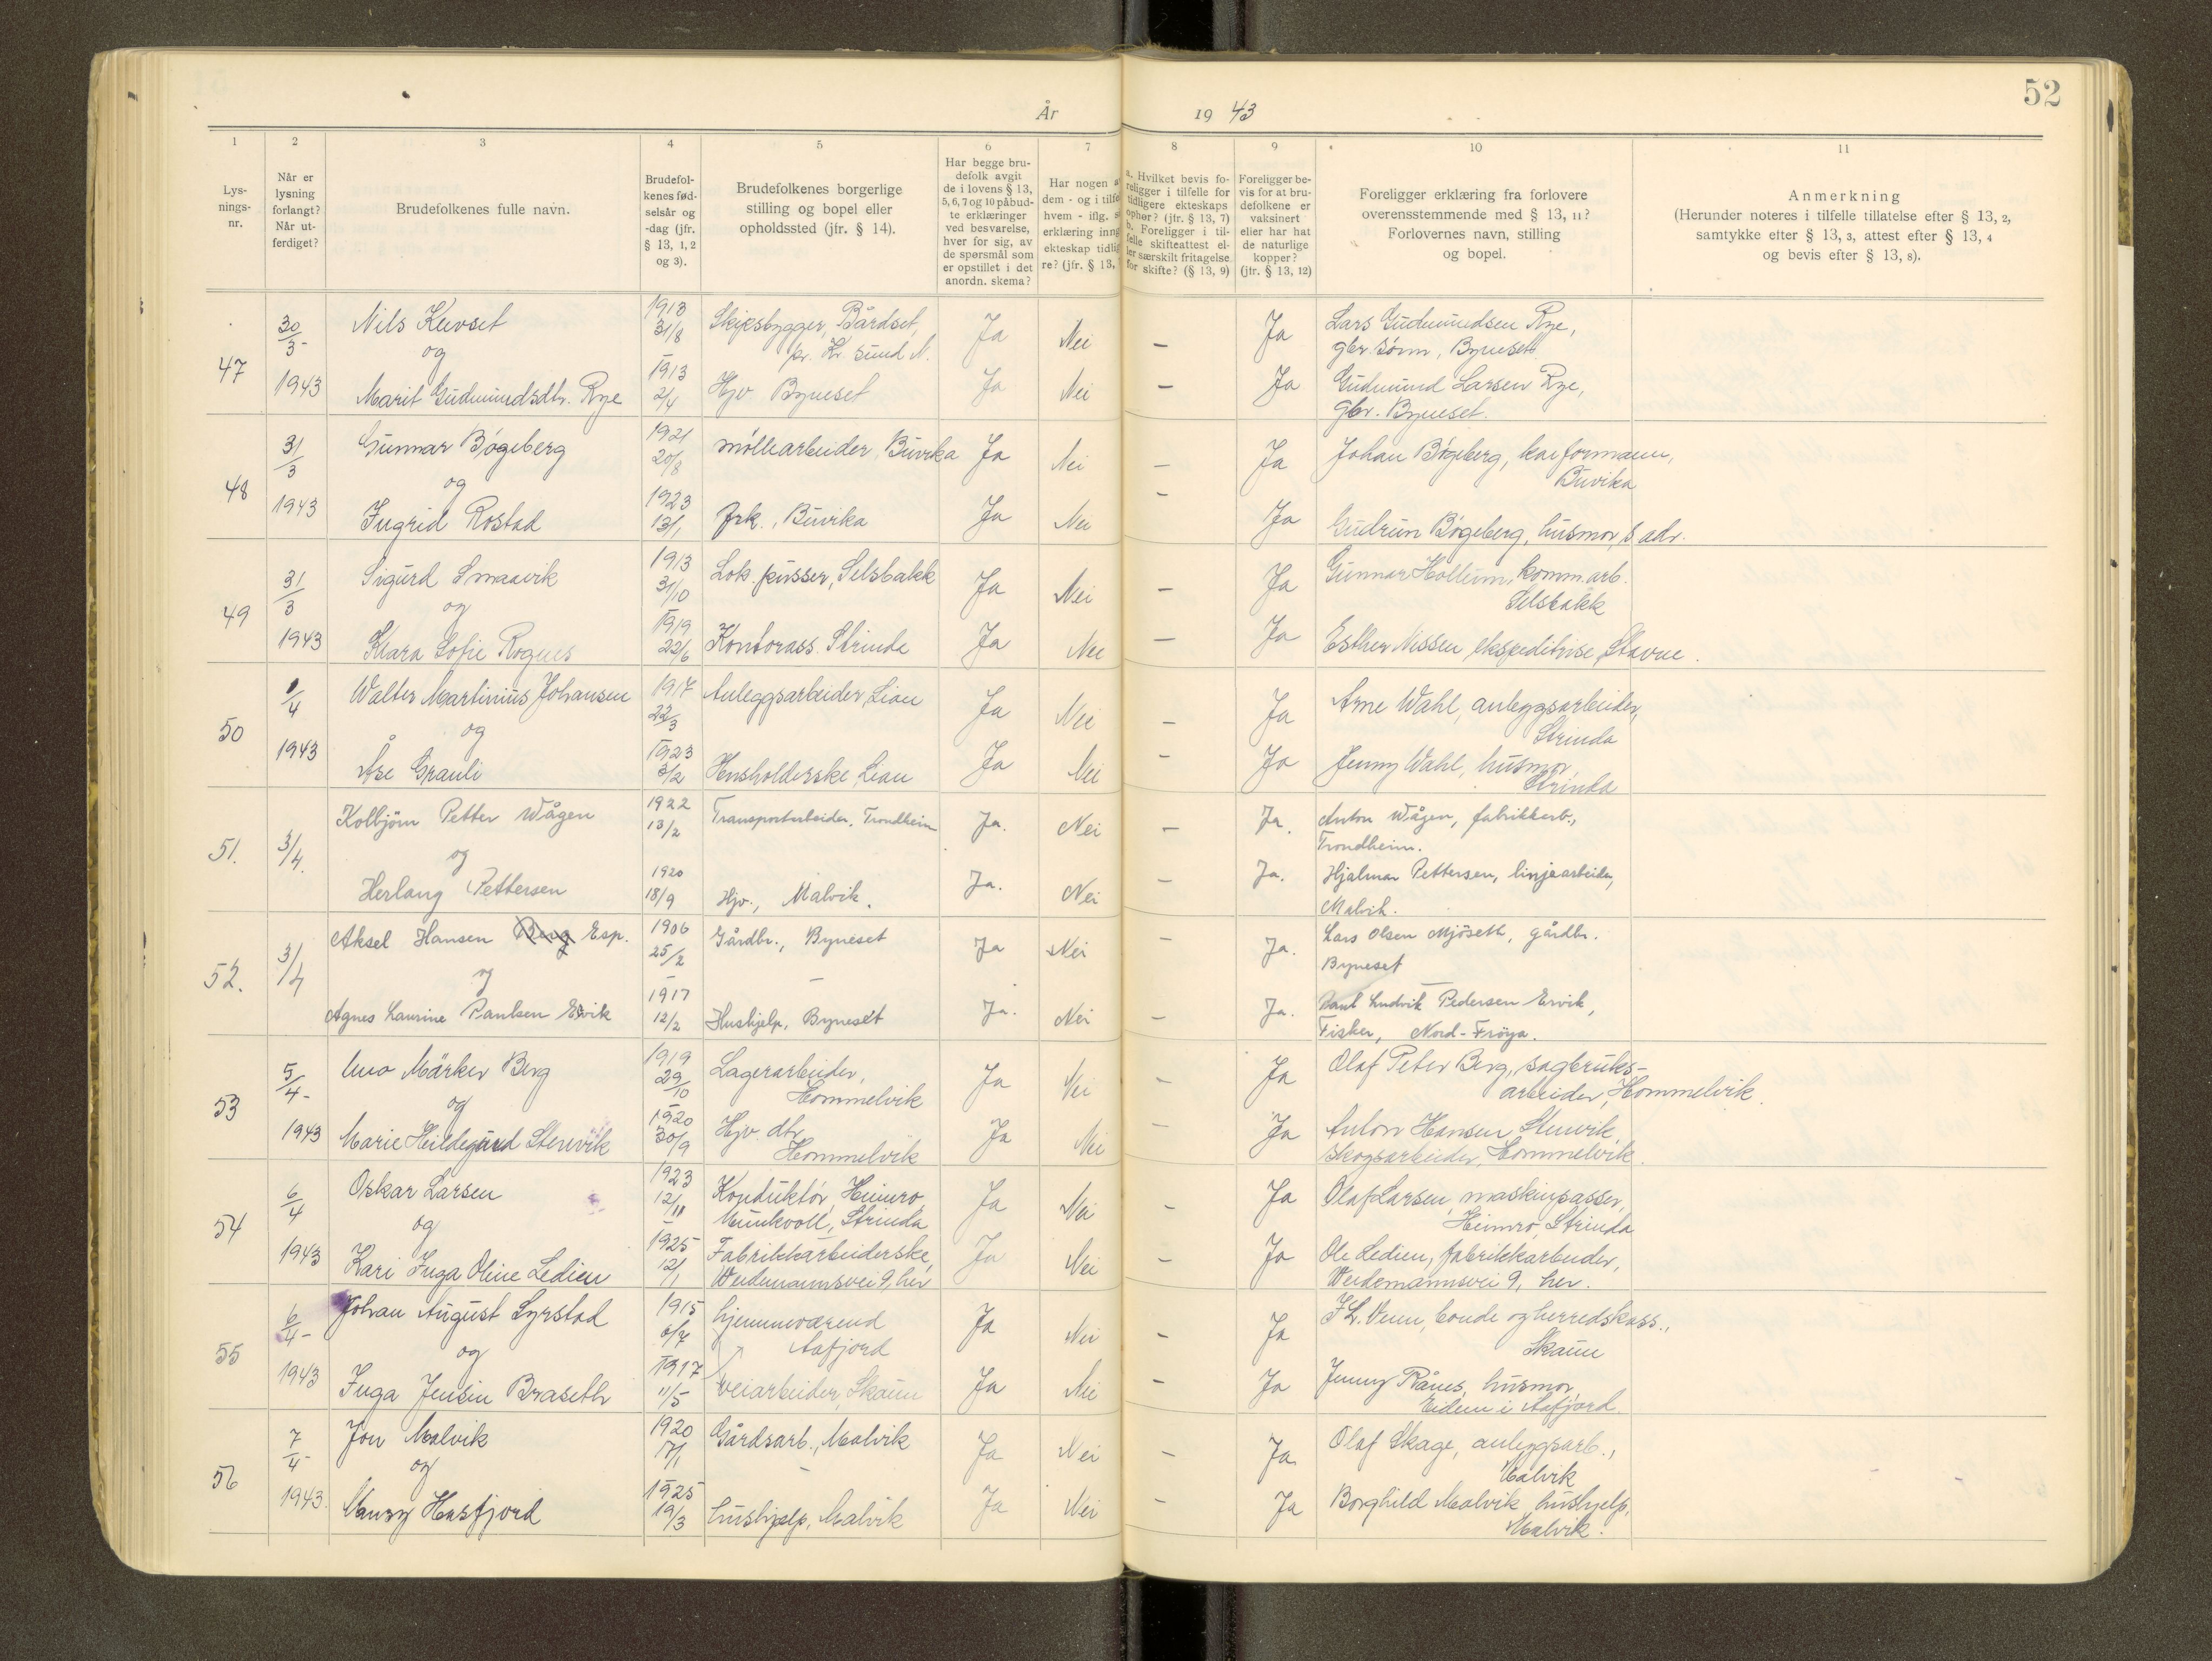 52
År 19 43
1 2 3 4 5 6 7 8 9 10 11
Lys-
nings-
nr.
Når er
lysning
forlangt?
Når ut-
ferdiget?
Brudefolkenes fulle navn.
Brudefol-
kenes fød-
selsår og
-dag (jfr.
§ 13, 1, 2
og 3).
Brudefolkenes borgerlige
stilling og bopel eller
opholdssted (jfr. § 14).
Har begge bru-
defolk avgit
de i lovens § 13,
5, 6, 7 og 10 påbud-
te erklæringer
ved besvarelse,
hver for sig, av
de spørsmål som
er opstillet i det
anordn. skema?
Har nogen a
dem - og i tilfe
hvem - iflg. s
erklæring inng
ekteskap tidlig
re? (jfr. § 13,
a. Hvilket bevis fo-
religger i tilfelle for
tidligere ekteskaps
ophør? (jfr. § 13, 7)
b. Foreligger i til-
felle skifteattest el-
ler særskilt fritagelse
for skifte? (§ 13, 9)
Foreligger be-
vis for at bru-
defolkene er
vaksinert
eller har hat
de naturlige
kopper?
(jfr. § 13, 12)
Foreligger erklæring fra forlovere
overensstemmende med § 13, 11?
Forlovernes navn, stilling
og bopel.
Anmerkning
(Herunder noteres i tilfelle tillatelse efter § 13, 2,
samtykke efter § 13, 3, attest efter § 13, 4
og bevis efter § 13, 8).
47
30/3-
1943
Nils Kuvset
og
Marit Gudmundsdtr. Rye
1913
31/8
1913
2/4
Skipsbygger, Bårdset,
pr. Kr. sund N.
Hjv Byneset
Ja Nei — Ja
Ja Nei — Ja
Lars Gudmundsen Rye,
gbr.sønn, Byneset
Gudmund Larsen Rye,
gbr. Byneset.
48
31/3
1943
Gunnar Bøgeberg
og
Ingrid Rostad
1921
20/8
1923
13/1
møllearbeider Buvika
Frk., Buvika
Ja Nei — Ja
Ja Nei — Ja
Johan Bøgeberg, kaiformann,
Buvika
Gudrun Bøgeberg, husmor, s. adr.
49
31/3
1943
Sigurd Smaavik
og
Klara Sofie Rognes
1913
31/10
1919
22/6
Lok. pusser, Selsbakk
Kontorass. Strinda
Ja Nei — Ja
Ja Nei — Ja
Gunnar Hollum, komm.arb.
Selsbakk
Esther Nissen ekspeditrise, Stavne.
50
1/4
1943
Walter Martinius Johansen
og
Åse Grauli
1917
22/3
1923
3/2
Anleggsarbeider, Lian
Husholderske Lian
Ja Nei — Ja
Ja Nei — Ja
Arne Wahl, anleggsarbeider,
Strinda
Jenny Wahl, husmor,
Strinda
51.
3/4.
Kolbjørn Petter Wågen
og
Herlaug Pettersen
1922
13/2
1920
18/9
Transportarbeider, Trondheim
Hjv., Malvik.
Ja. Nei — Ja.
Ja. Nei — Ja.
Anton Wågen, fabrikkarb.,
Trondheim.
Hjalmar Pettersen, linjearbeider,
Malvik.
52.
3/4
Aksel Hansen Berg Esp.
og
Agnes Laurine Paulsen Ervik
1906
25/2
1917
12/2
Gårdbr., Byneset
—
Hushjelp, Byneset
Ja Nei — Ja.
Ja. Nei — Ja.
Lars Olsen Mjøseth, gårdbr.
Byneset
Paul Ludvik Pedersen Ervik,
Fisker, Nord-Frøya.
53
5/4-
1943
Uno Märker Berg
og
Marie Hildegard Stenvik
1919
29/10
1920
30/9
Lagerarbeider,
Hommelvik
Hjv. dtr
Hommelvik
Ja Nei — Ja
Ja Nei — Ja
Olaf Peter Berg, sagbruks-
arbeider, Hommelvik.
Anton Hansen Stenvik,
skogsarbeider, Hommelvik.
54
6/4
1943
Oskar Larsen
og
Kari Inga Oline Ledien
1923
12/11
1925
12/1
Konduktör, Heimro,
Munkvoll, Strinda
Fabrikkarbeiderske,
Weidemannsvei 9, her
Ja Nei — Ja
Ja Nei — Ja
Olaf Larsen, maskinpasser,
Heimro, Strinda
Ole Ledien, fabrikkarbeider,
Weidemannsvei 9, her.
55
6/4-
1943
Johan August Syrstad
og
Inga Jensin Braseth
1915
6/7
1917
11/5
hjemmeværend
Aafjord
veiarbeider, Skaun
Ja Nei — Ja
Ja Nei — Ja
bonde og herredskass.,
Skaun
Jenny Rånes, husmor,
Eidem i Aafjord.
56
7/4-
1943.
Jon Malvik
og
Hasfjord
1920
17/1
1925
19/3
Gårdsarb., Malvik
—
hushjelp, Malvik
Ja Nei — Ja
Ja Nei — Ja
Olaf Skage, anleggsarb.,
Malvik
Borghild Malvik hushjelp,
Malvik.